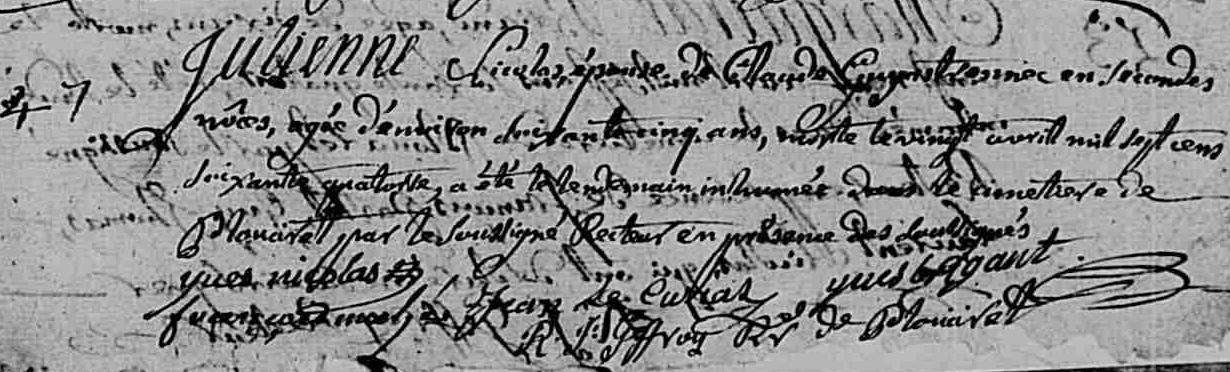 Julienne Nicolas, épouse de Claude en secondes
nôces, agée d'environ soixante cinq ans, morte le vingt avril mil sept cens
soixante quatorze, a été le lendemain inhumée dans le cimetiere de
Plouaret par le soussigné Recteur en présence des soussignés
yves nicolas yves gant
jean Le R. de Plouaret